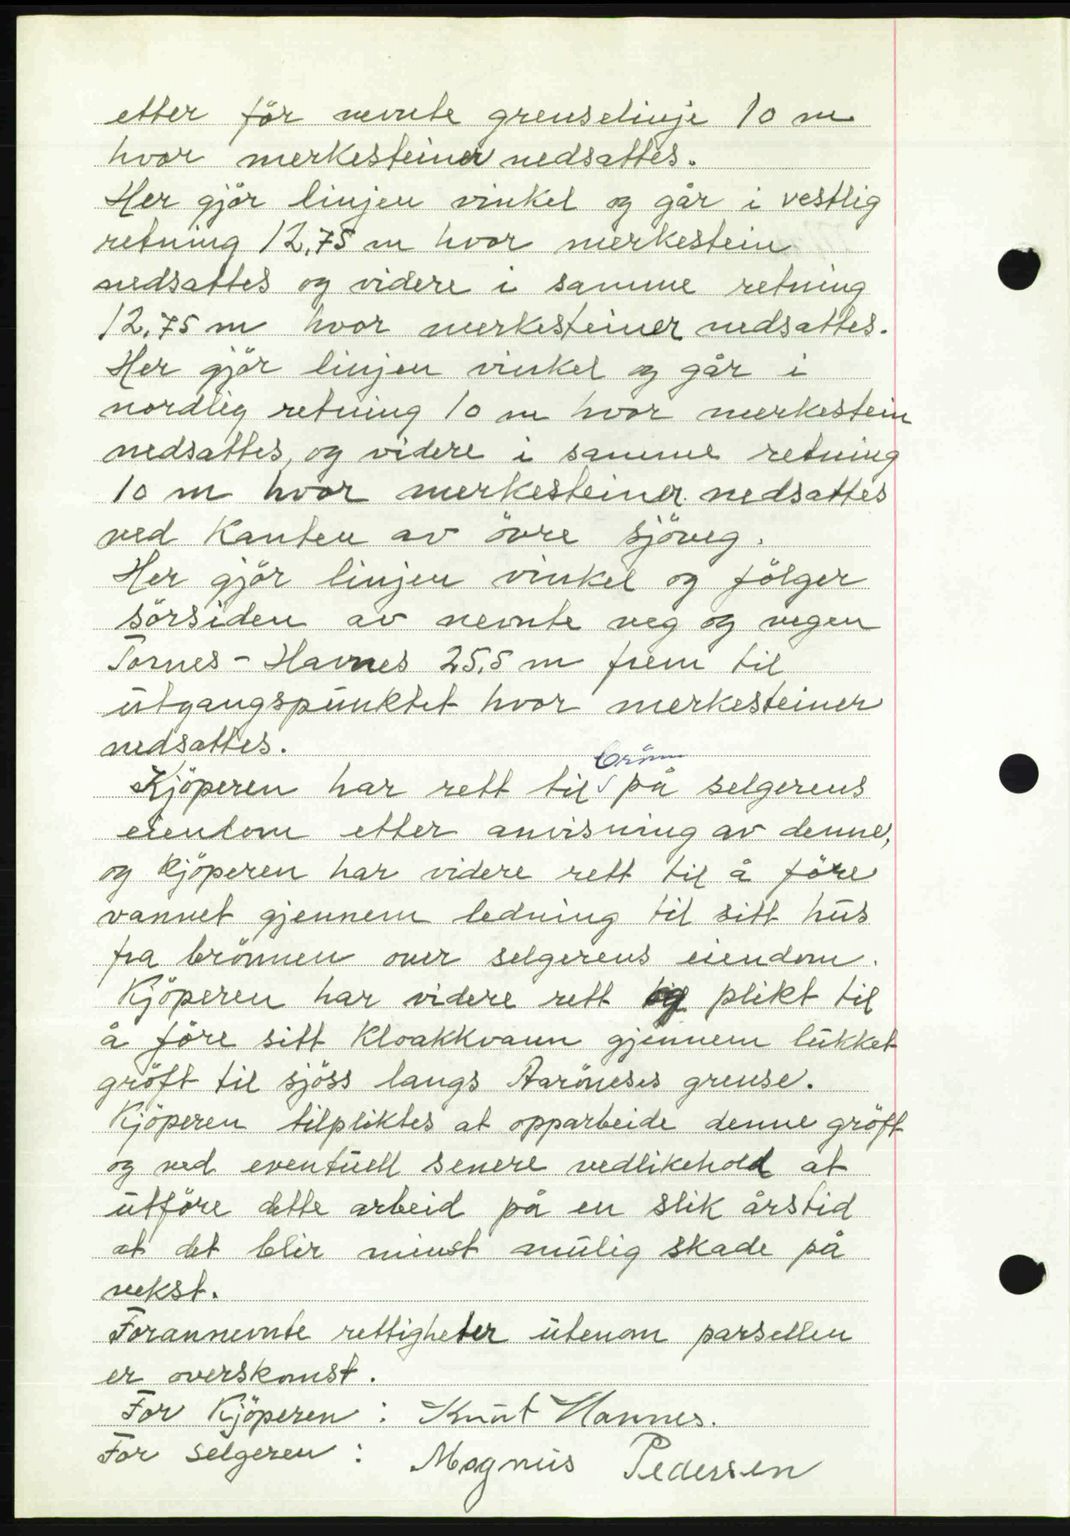 etter för nevnte grenselinje 10 m
hvor merkesteiner nedsattes.
Her gjör linjen vinkel og går i vestlig
retning 12,75 m hvor merkestein
nedsattes og videre i samme retning
12.75 m hvor merkesteiner nedsattes.
Her gjör linjen vinkel og går i
nordlig retning 10 m hvor merkestein
nedsattes, og videre i samme retning
10 m hvor merkesteiner nedsattes
ved Kanten av övre sjöveg.
Her gjör linjen vinkel og fölger
sörsiden av nevnte veg og vegen
Tornes - Havnes 25,5 m frem til
utgangspunktet hvor merkesteiner
nedsattes.
Kjöperen har rett til brönn på selgerens
eiendom etter anvisning av denne,
og Kjöperen har videre rett til å före
vannet gjennem ledning til sitt hus
fra brönnen over selgerens eiendom.
Kjöperen har videre rett og plikt til
å före sitt Kloakkvann gjennem lukket
gröft til sjöss langs Aaröneses grense.
Kjöperen tilpliktes at opparbeide denne gröft
og ved eventuell senere vedlikehold at
utföre dette arbeid på en slik årstid
at det blir minst mulig skade på
vekst.
Forannevnte rettigheter utenom parsellen
er overskomst.
For Kjöperen : Knut Hannes.
For selgeren : Magnus Pedersen